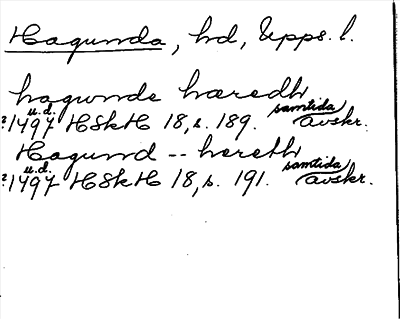 Hagunda, hd, Upps. l.
hagwnde hæredh
?1497 u.d. HSkH 18, s. 189. samtida avskr.
Hagund -- hæreth
?1497 u.d. HSkH 18, s. 191. samtida avskr.